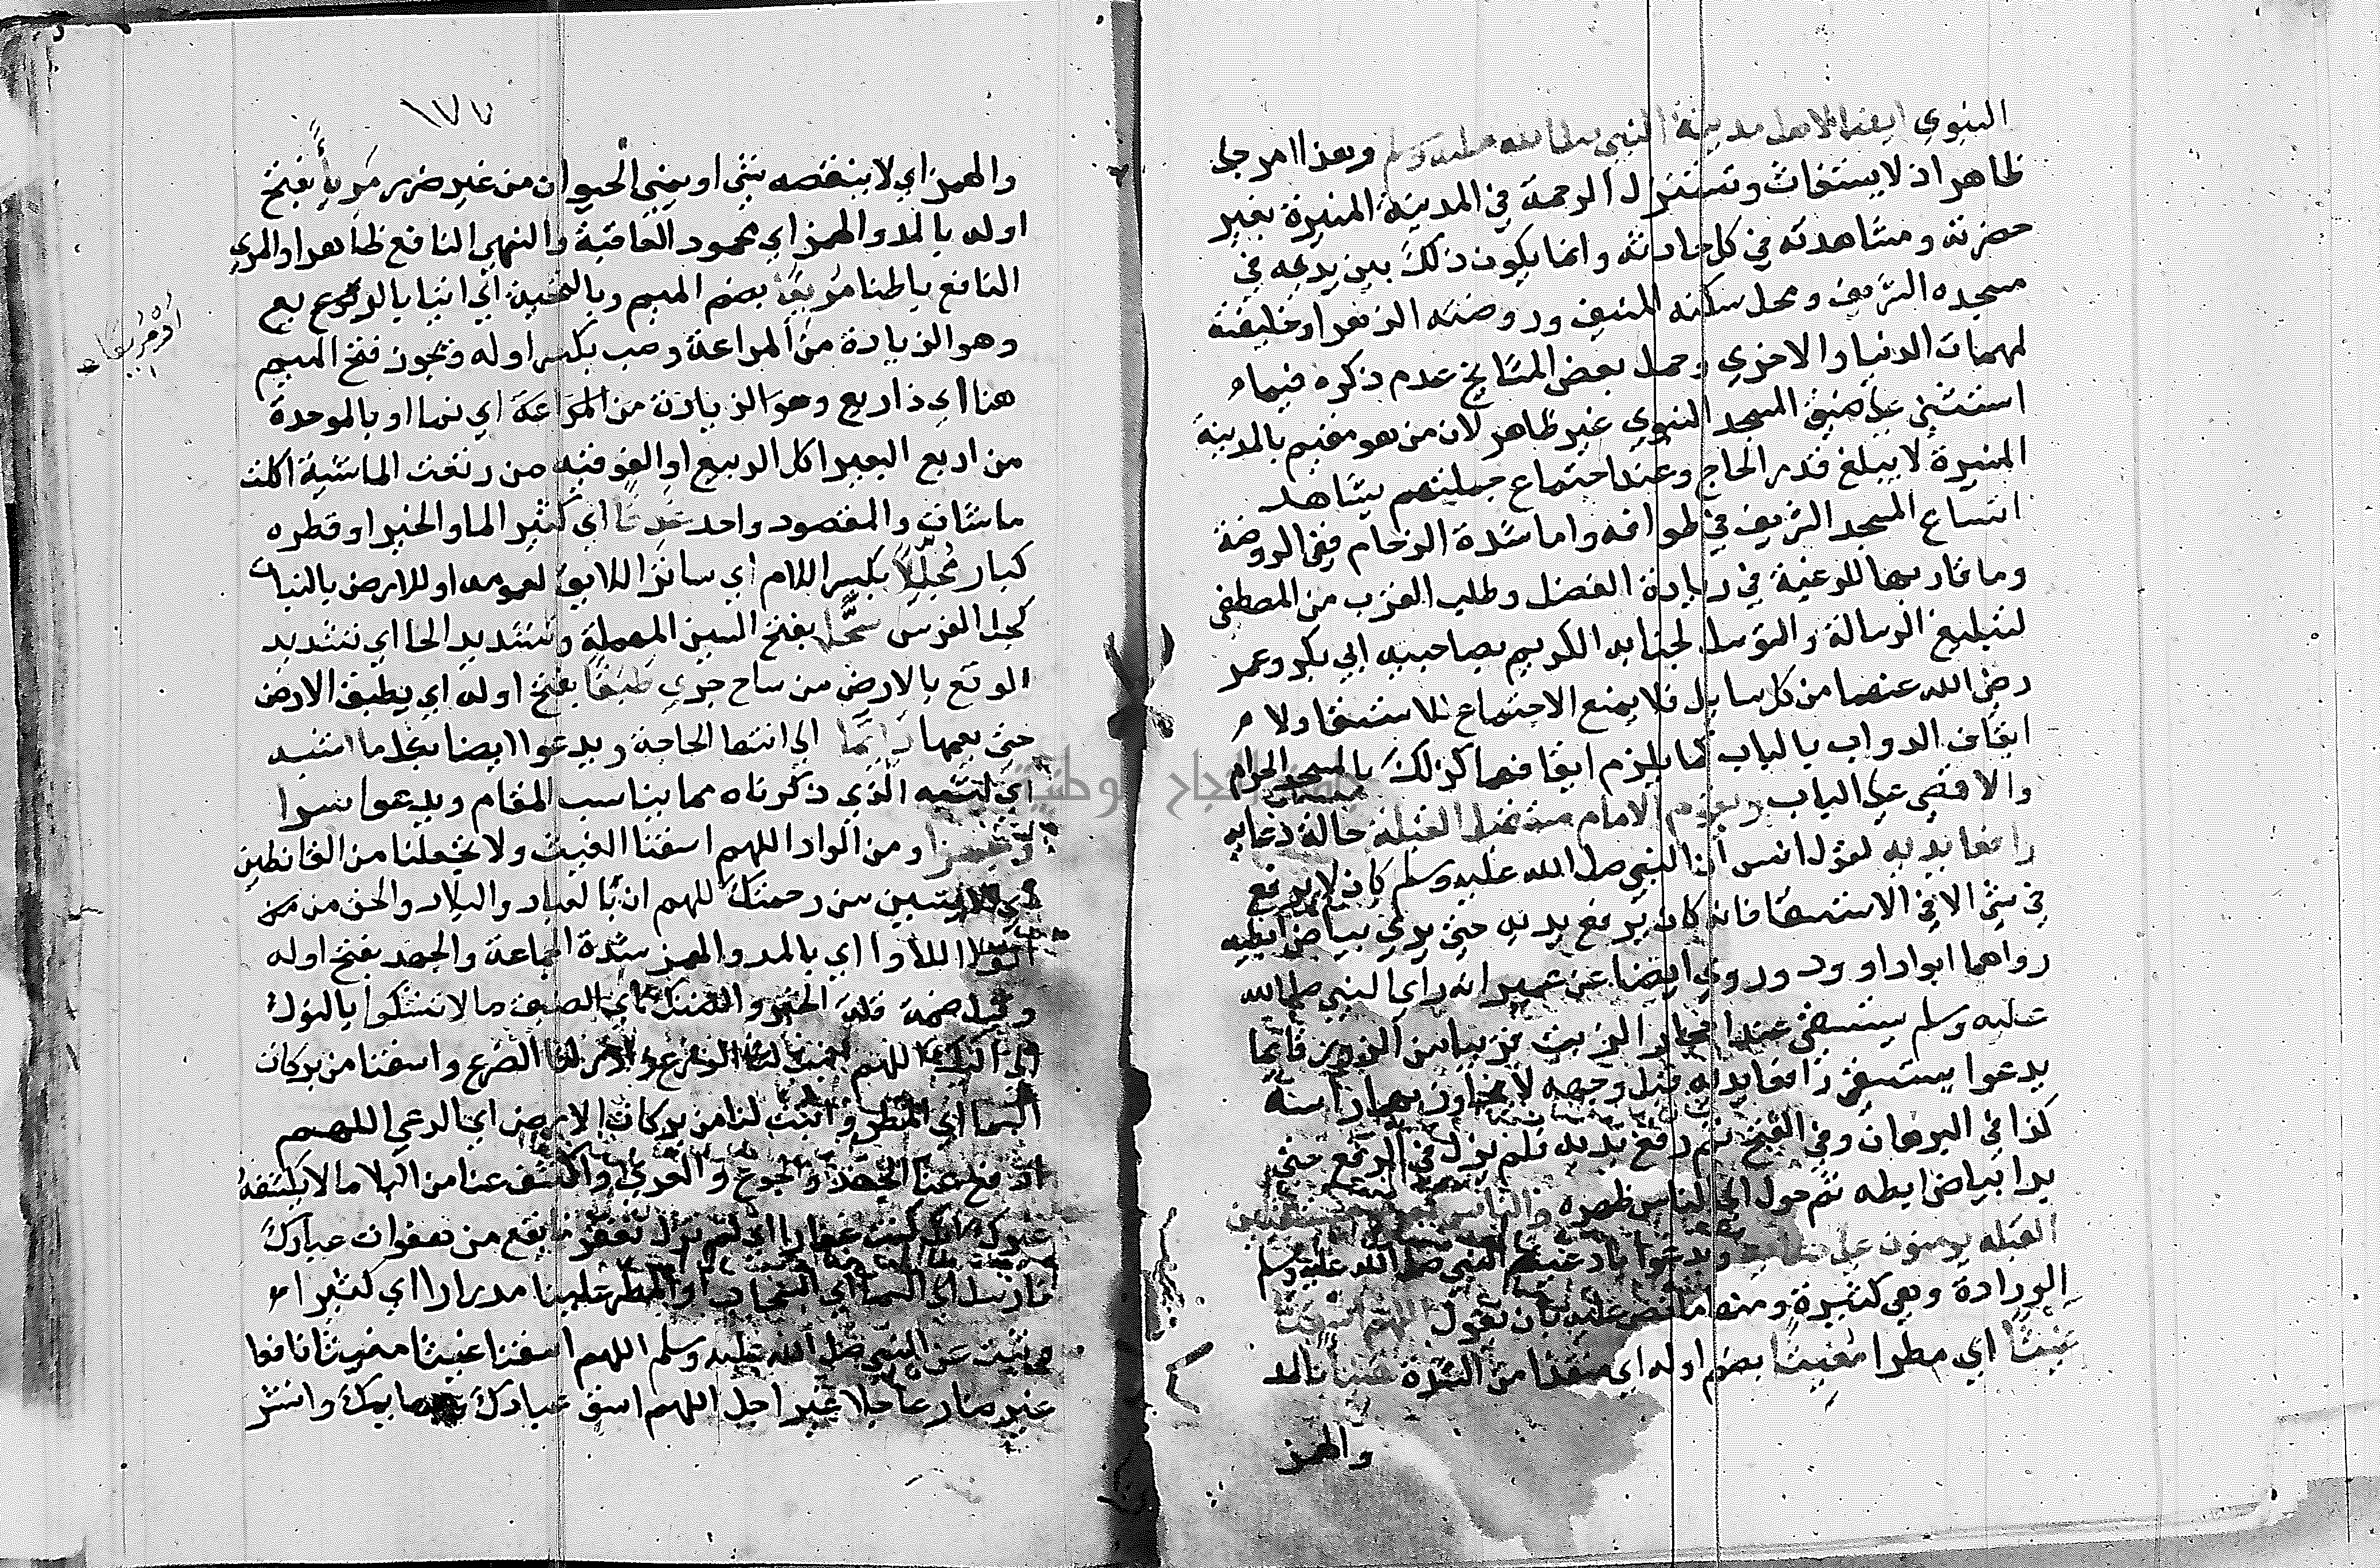 النبوي ايضا لاهل مدينة النبي صلى الله عليه وسلم وهذا امر جلي
ظاهر اذ لا يستغاث وتستنزل الرحمة في المدينة المنيرة بغير
حضرته ومشاهدته في كل حادثة وانما يكون ذلك بين يديه في
مسجده الشريف ومحل سكنه المنيف وروضته الزهرا وخليفته
لمهمات الدنيا والاخري وحمل بعض المشايخ عدم ذكره فيما
استثني علي ضيق المسجد النبوي غير ظاهر لان من هو مقيم بالمدينة
المنيرة لا يبلغ قدر الحاج وعند اجتماع جملتهم يشاهد
اتساع المسجد الشريف في طوافه واما شدة الزحام ففي الروضة
وما قاربها للرغبة في زيادة الفضل وطلب القرب من المصطفى
لتبليغ الرسالة والتوسل لجنابه الكريم بصاحبيه ابي بكر وعمر
رضي الله عنهما من كل سايل فلا يمنع الاجتماع للاستسقا ولا
ايقاف الدواب بالباب كما يلزم ايقافها كذلك بالمسجد الحرام
والاقصي علي الباب ويقوم الامام مستقبل القبلة حالة دعايه
رافعا يديه لقول انس ان النبي صلى الله عليه وسلم كان لا يرفع
في شي الا في الاستسقا فانه كان يرفع يديه حتي يري بياض ابطيه
رواهما ابو داوود وروي ايضا عن عمير انه راي النبي صلى الله
عليه وسلم يستسقي عند احجار الزيت قريبا من الزورا قايما
يدعوا يستسقي رافعا يديه قبل وجهه لا يجاوز بهما راسه
كذا في البرهان وفي الفتح ثم رفع يديه فلم يزل في الرفع حتي
بدا بياض ابطه ثم حول الي الناس ظهره والناس قعود مستقبلين
القبلة يومنون علي دعايه ويدعوا بادعية النبي صلى الله عليه وسلم
الواردة وهي كثيرة ومنه ما نص عليه بان يقول اللهم اسقنا
غيثا اي مطرا مغيثا بضم اوله اي منقذا من الشدة هنيا بالمد
والهمز
١٧٧
والهمز اي لا ينغصه شي او ينمي الحيوان من غير ضرر مريا بفتح
اوله بالمد والهمز اي محمود العاقبة والنهي النافع ظاهرا والمري
النافع باطنا مريعا بضم الميم وبالتحتية اي اتيا بالريع
وهو الزيادة من المراعة وصب بكسر اوله ويجوز فتح الميم
هنا اي ذا ريع وهو الزيادة من المراعة اي نما او بالموحدة
من اربع البعير اكل الربيع او الفوقية من رتعت الماشية اكلت
ماشات والمقصود واحد غدقا اي كثير الما والخير او قطره
كبار مجللا بكسر اللام اي ساتر اللافق لعمومه او للارض بالنبات
كجل الفرس سحا بفتح السين المهملة وتشديد الحا اي شديد
الوقع بالارض من ساح جري طبقا بفتح اوله اي يطبق الارض
حتي يعمها دايما الي انتها الحاجة ويدعوا ايضا بكل ما اشبه
اي اشبه الذي ذكرناه مما يناسب المقام ويدعوا سرا
وجهرا ومن الوارد اللهم اسقنا الغيث ولا تجعلنا من القانطين
اي الايسين من رحمتك اللهم ان بالعباد والبلاد والخلق من
اللاوا اي بالمد والهمز شدة المجاعة والجهد بفتح اوله
وقيل ضمه قلة الخير والضنك اي الضيق ما لا نشكوا بالنون
الا اليك اللهم انبت لنا الزرع وادر لنا الضرع واسقنا من بركات
السما اي المطر وانبت لنا من بركات الارض اي المرعي اللهم
ارفع عنا الجهد والجوع والعري واكشف عنا من البلا ما لا يكشفه
غيرك انك كنت غفارا اي لم تزل تغفر ما يقع من هفوات عبادك
فارسل السما اي السحاب او المطر علينا مدرارا اي كثيرا
وثبت عن النبي صلى الله عليه وسلم اللهم اسقنا غيثا مغيثا نافعا
غير ضار عاجلا غير اجل اللهم اسق عبادك وبهايمك وانشر